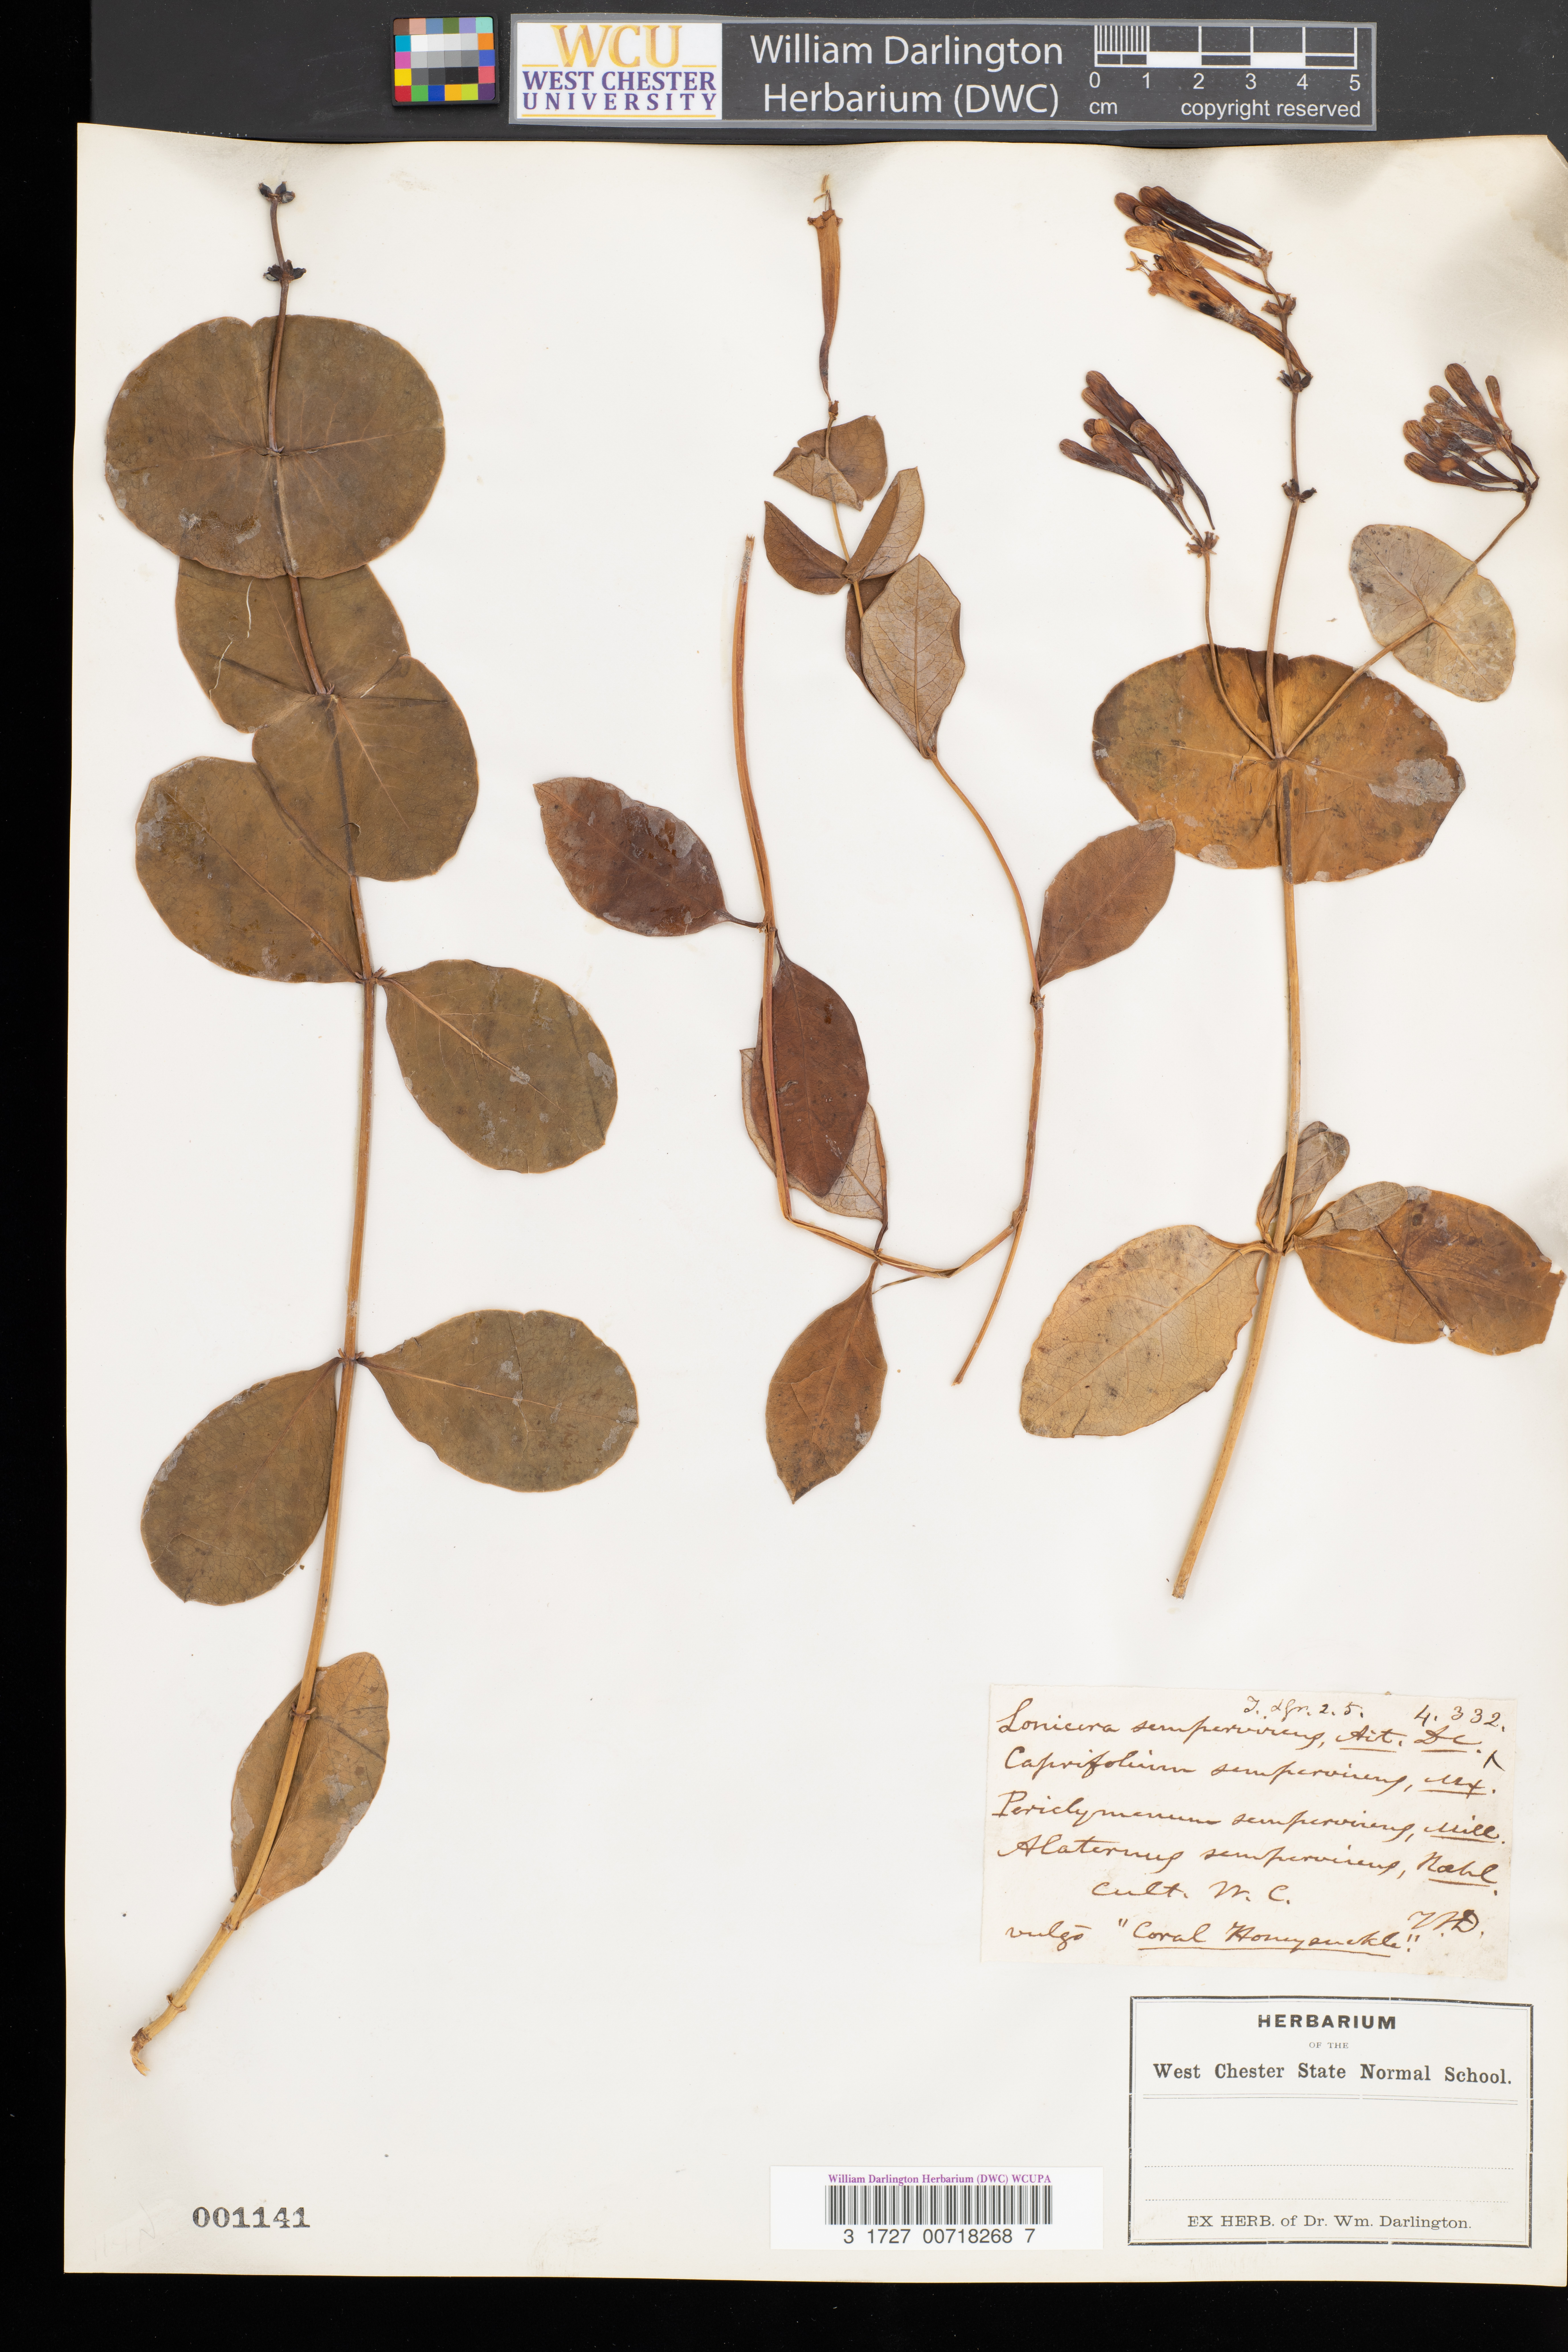 WCU
WEST CHESTER
UNIVERSITY
William Darlington
Herbarium (DWC)
0 1 2 3 4 5
cm copyright reserved
T. & Gr. 2. 5. 4. 332.
Lonicera sempervirens, Ait. DC.
Caprifolium sempervirens, Mx.
Periclymenum sempervirens, Mill.
Alaternus sempervirens,
Cult. W. C.
W.D.
vulgo "Coral Honeysuckle".
HERBARIUM
OF THE
West Chester State Normal School.
EX HERB. of Dr. Wm. Darlington.
William Darlington Herbarium (DWC) WCUPA
3 1727 00718268 7
001141